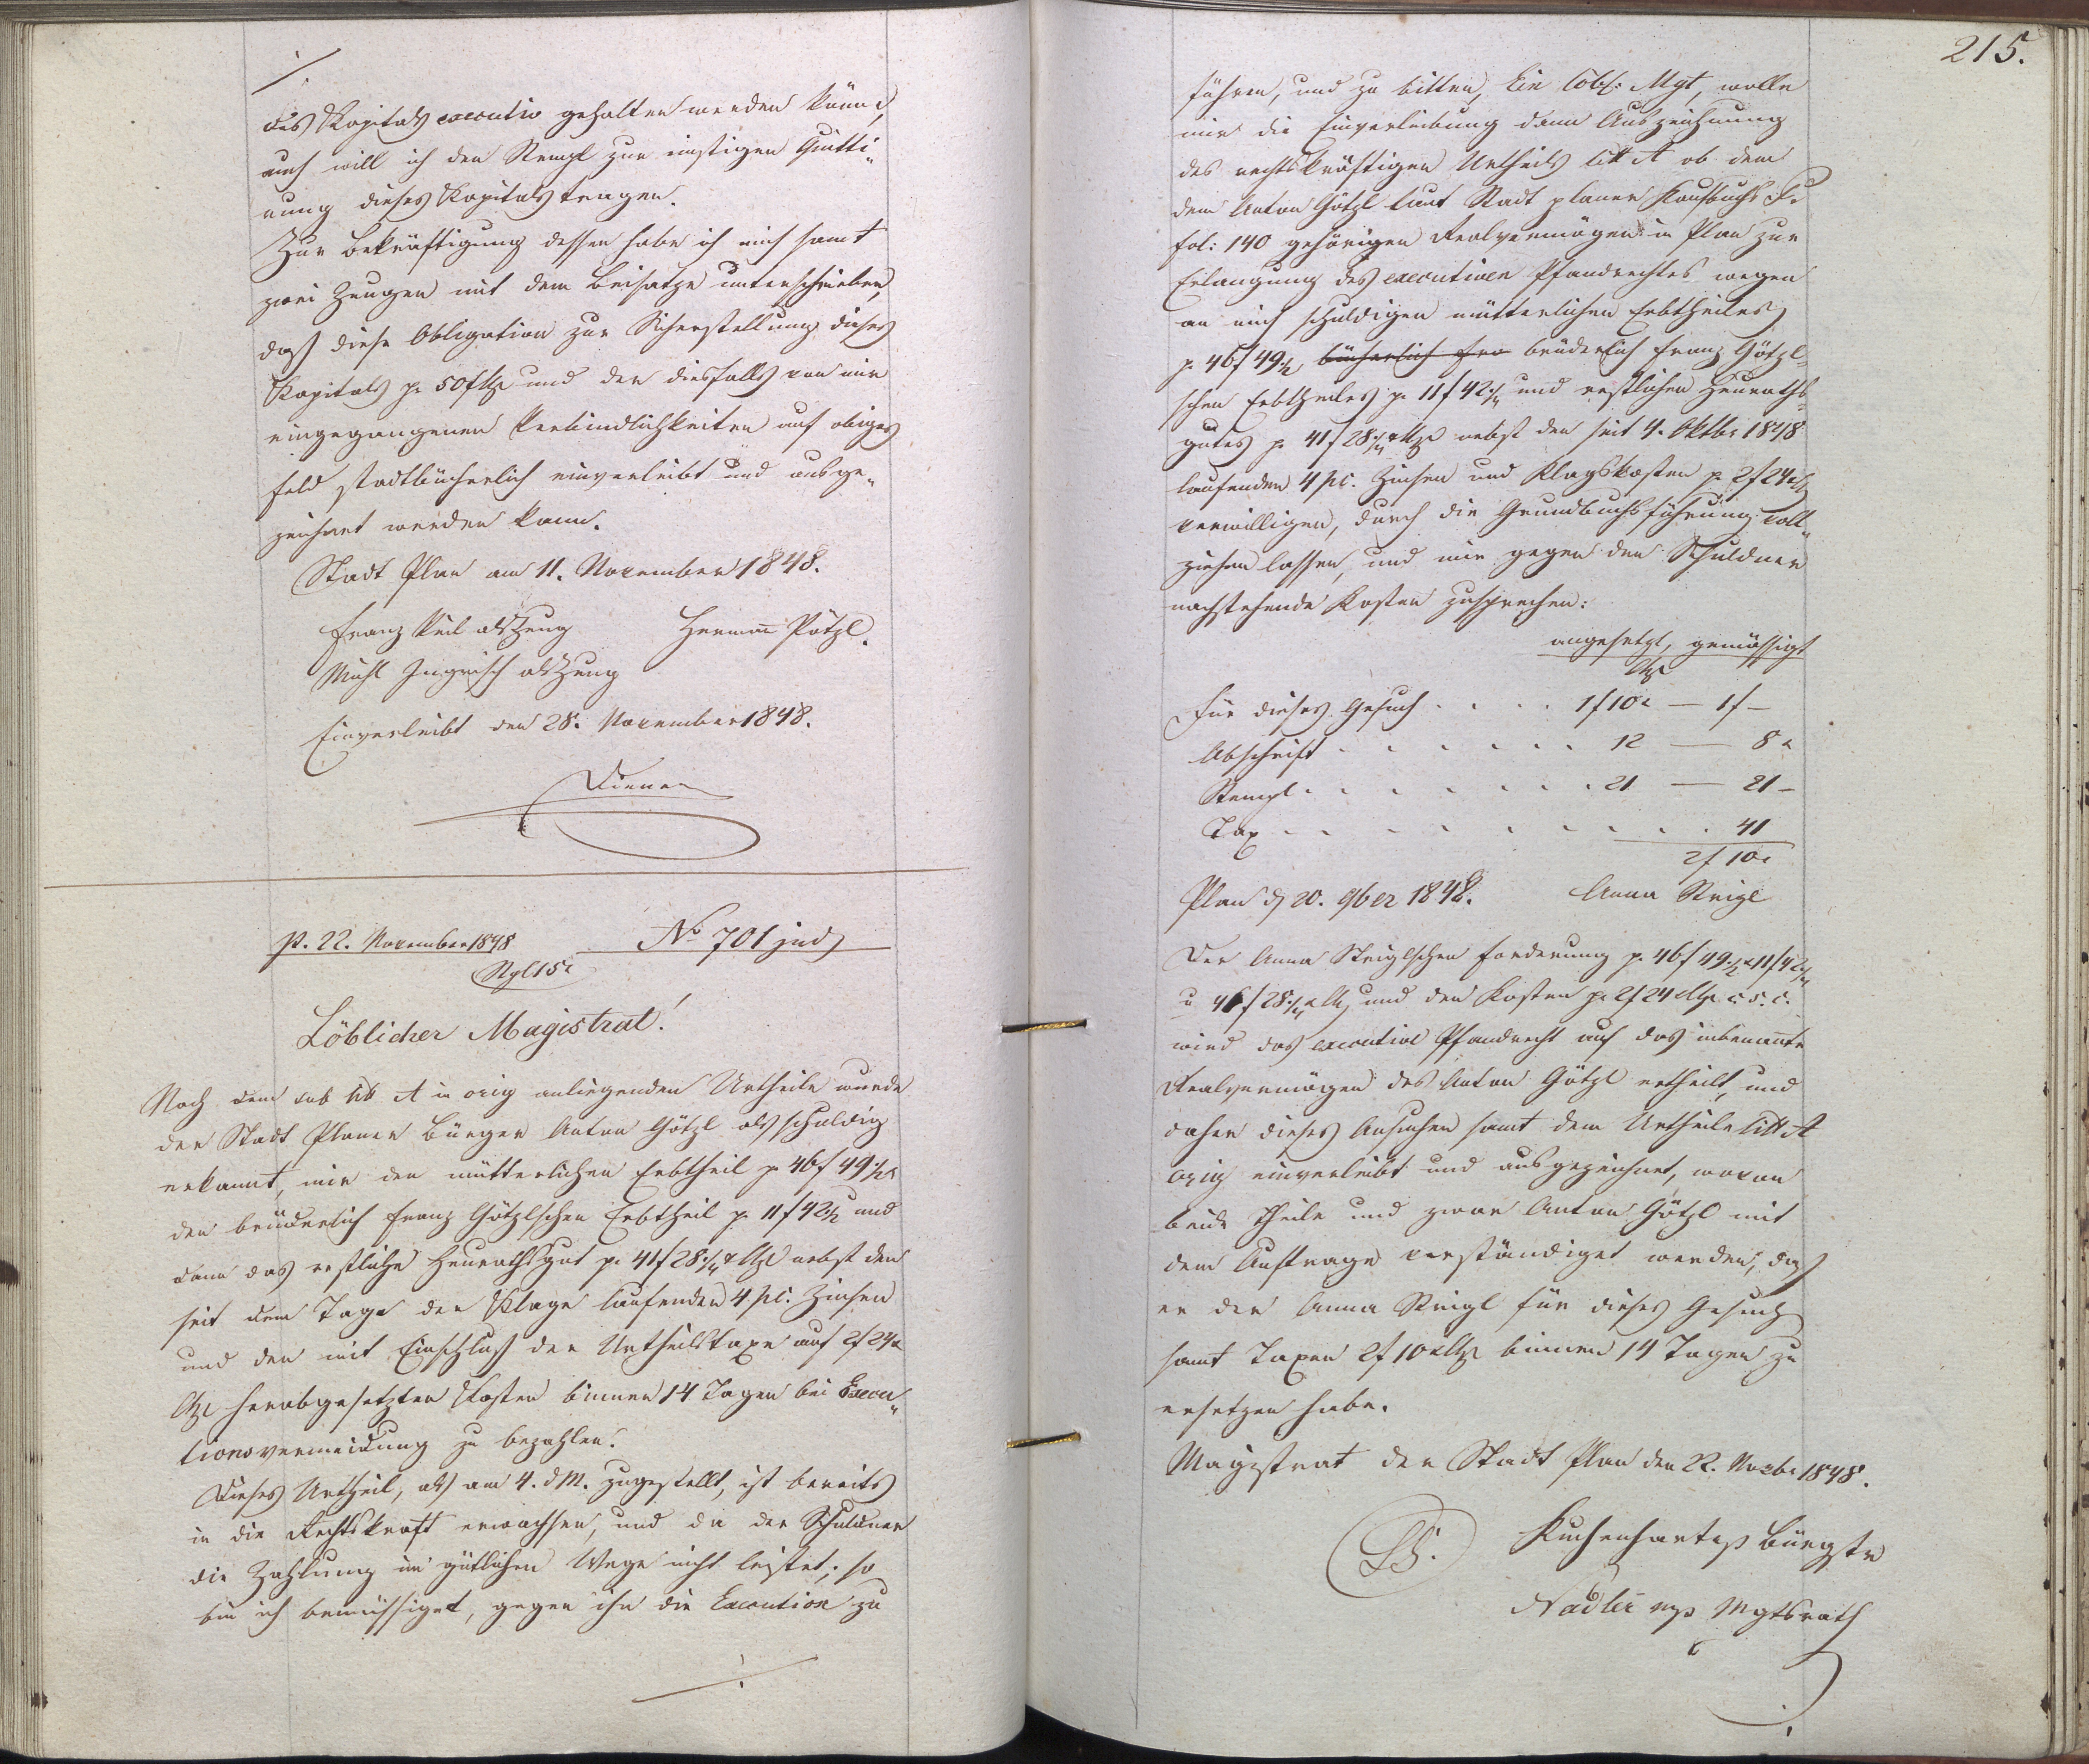 ./.
des Kapitals executiv gehalten werden könne,
auch will ich den Stempl zur einstigen Quitti„
rung dieses Kapitals tragen.
Zur Bekräftigung dessen habe ich mich samt
zwei Zeugen mit dem Beisatze unterschrieben,
daß diese Obligation zur Sicherstellung dieses
Kapitals p. 50 f CMze und der diesfalls von mir
eingegangenen Verbindlichkeiten auf obiges
Feld stadtbücherlich einverleibt und ausge„
zeichnet werden kann.
Stadt Plan am 11. November 1848.
Franz Keil als Zeug Herman̄ Pötzl.
Michl Ingrisch als Zeug
Einverleibt den 28. November 1848.
Diener
p. 22. November 1848 No 701 jud
Stpl 15 x
Löblicher Magistrat!
Nach dem sub litt A in orig anliegenden Urtheile wurde
der Stadt Planer Bürger Anton Götzl als schuldig
erkannt, mir den mütterlichen Erbtheil p. 46 f 49 1/2 x
den brüderlich Franz Götzlschen Erbtheil p. 11 f 42 1/2 und
dann das restliche Heurathsgut p. 41 f 28 1/4 x CMze nebst den
seit dem Tage der Klage laufenden 4 pc. Zinsen
und den mit Einschluß der Urtheilstaxe auf 2 f 24 x
CMze herabgesetzten Kosten binnen 14 Tagen bei Execu„
tionsvermeidung zu bezahlen.
Dieses Urtheil, als am 4. d M. zugestellt, ist bereits
in die Rechtskraft erwachsen, und da der Schuldner
die Zahlung im gütlichen Wege nicht leistet; so
bin ich bemüssiget, gegen ihn die Execution zu
./.
215.
führen, und zu bitten, Ein löbl: Mgt, wolle
mir die Einverleibung dann Auszeichnung
des rechtskräftigen Urtheils litt A ob dem
dem Anton Götzl laut Stadt planer Kaufbuchs F.
fol: 140 gehörigen Realvermögen in Plan zur
Erlangung des executiven Pfandrechtes wegen
an mich schuldigen mütterlichen Erbtheiles
p. 46 f 49 1/2, bücherlich Fra brüderlich Franz Götzl„
schen Erbtheiles p. 11 f 42 1/4 und restlichen Heuraths„
gutes p. 41 f 28 1/4 x CMze nebst den seit 4. Oktbr 1848
laufenden 4 pc. Zinsen und Klagskosten p. 2 f 24 x CMze
verwilligen, durch die Grundbuchsführung voll„
ziehen lassen, und mir gegen den Schuldner
nachstehende Kosten zusprechen:
angesetzt, gemässigt
CMze
Für dieses Gesuch . . . . 1 f 10 x — 1 f —
Abschrift . . . . . . 12 — 8 x
Stempl . . . . . . . 21 — 21 –
Tax . . . . . . . . . 41
2 f 10 x
Plan d 20. 9ber 1848. Anna Steigl
Der Anna Steiglschen Forderung p. 46 f 49 1/2 x 11 f 42 1/4
u 41 f 28 1/4 x CMze und den Kosten p. 2 f 24 CMze c. s. c.
wird das executive Pfandrecht auf das inbenan̄te
Realvermögen des Anton Götzl ertheilt, und
daher dieses Ansuchen samt dem Urtheile litt A
orig einverleibt und ausgezeichnet, wovon
beide Theile und zwar Anton Götzl mit
dem Auftrage verständiget werden, daß
er der Anna Steigl für dieses Gesuch
samt Taxen 2 f 10 x CMze binnen 14 Tagen zu
ersetzen habe.
Magistrat der Stadt Plan den 22. Novbr 1848.
LS. Kuchenhartip Bürgstr
Nadler mp Mgtsrath
./.